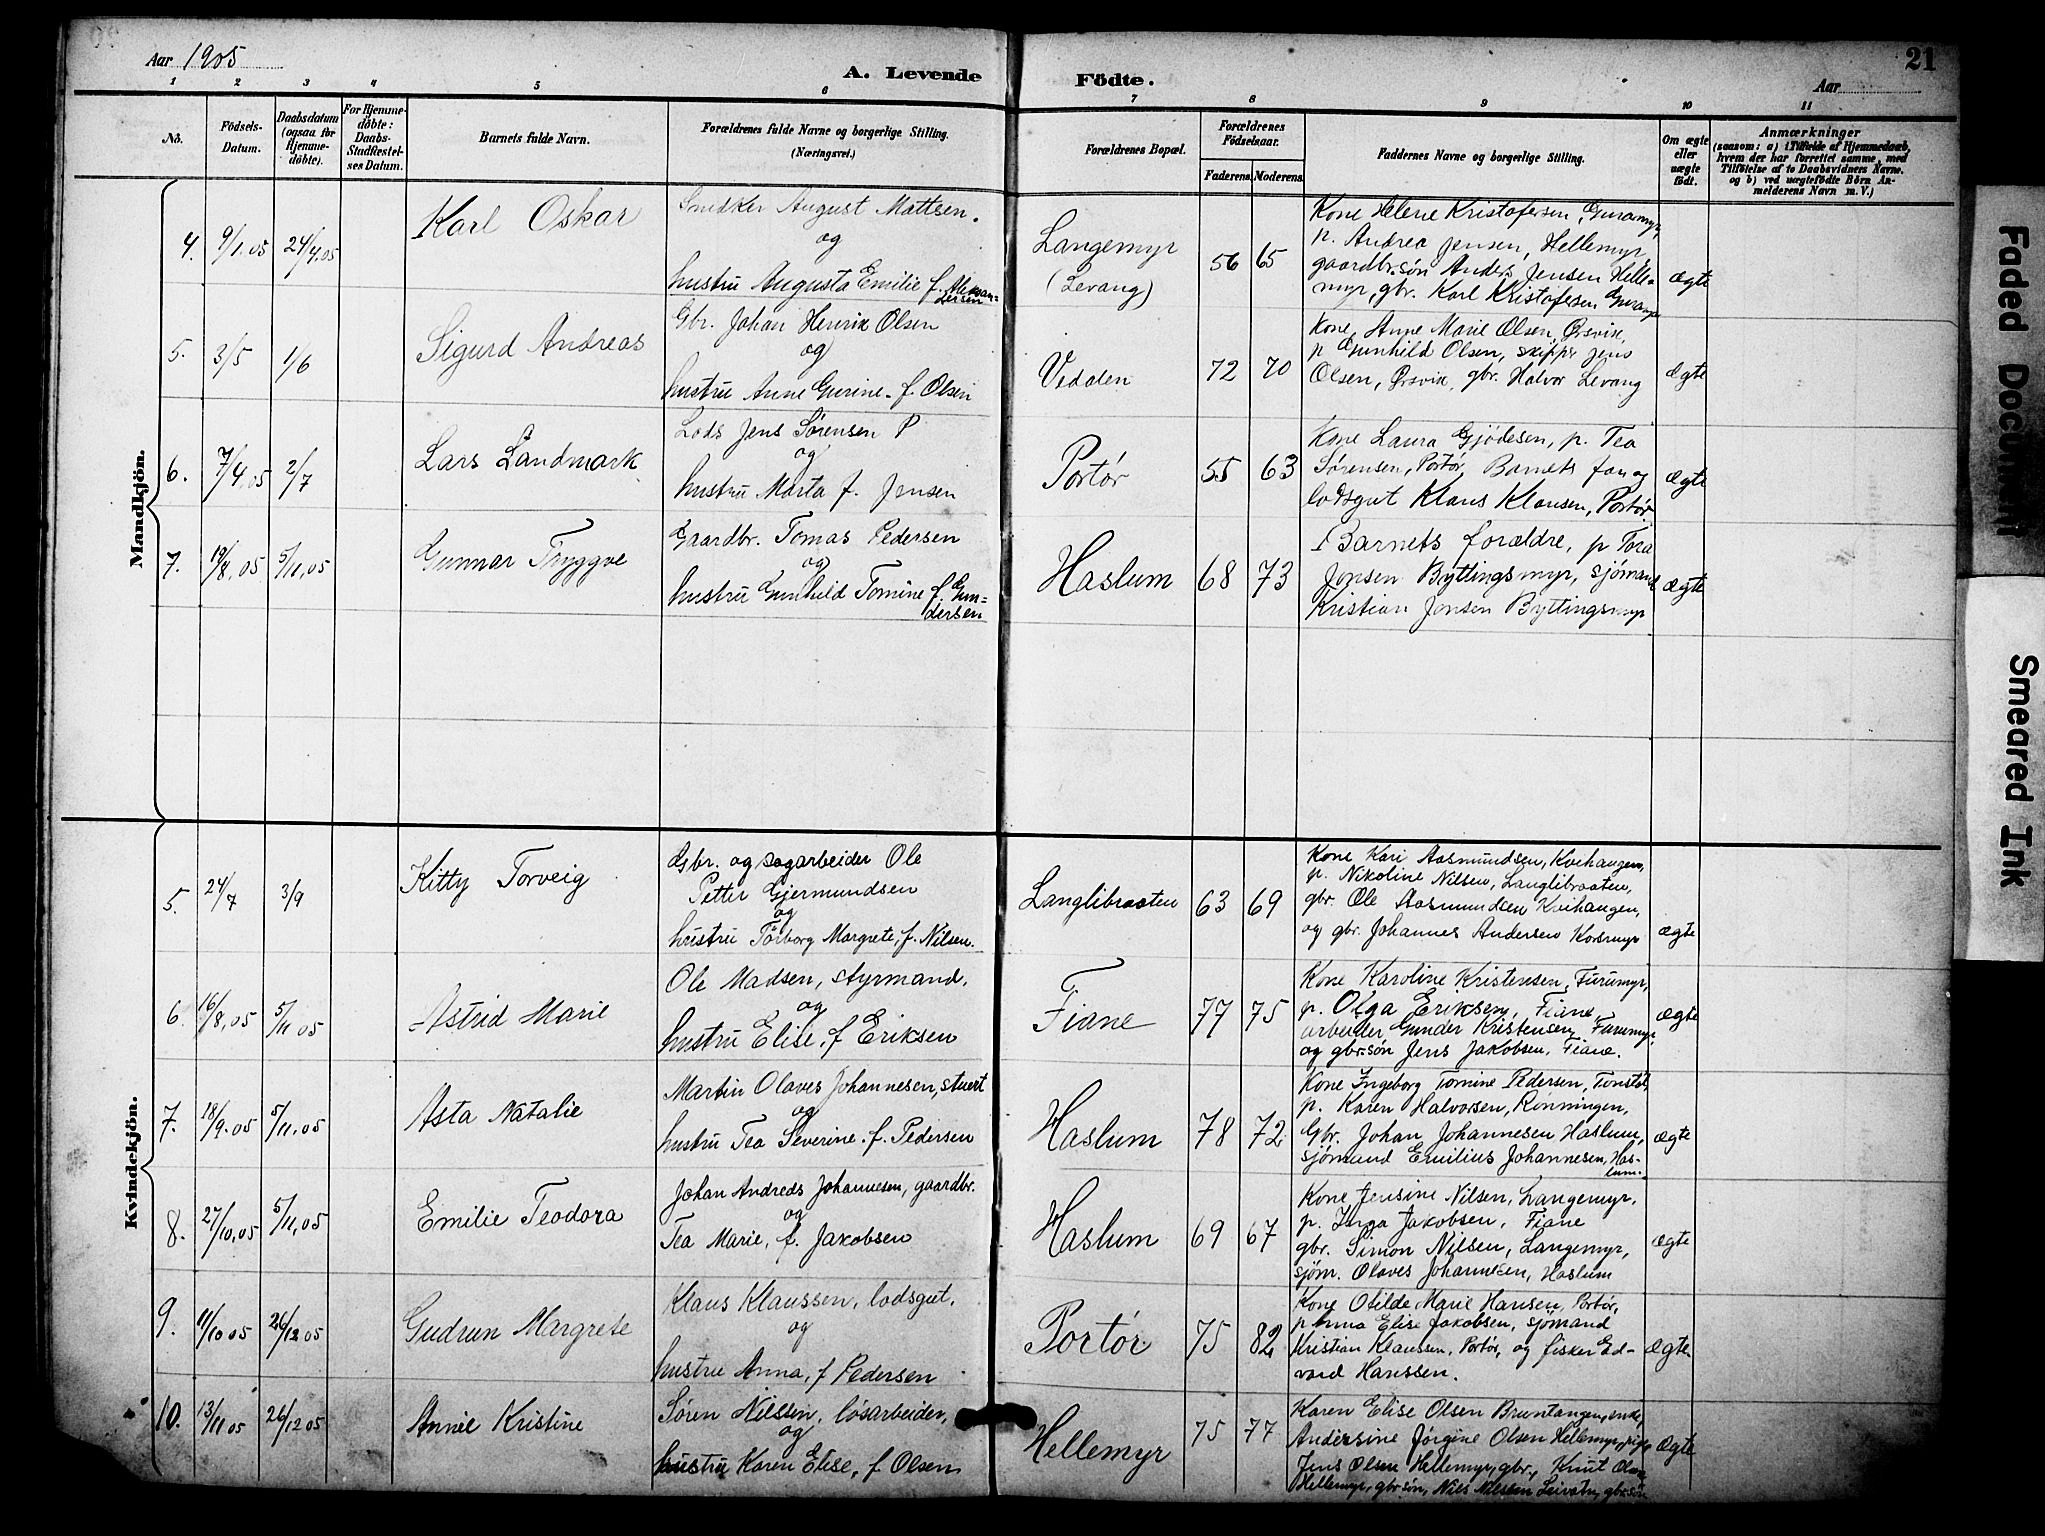 Aar 1905
A. Levende Födte.
21
Aar
1 2 3 4 5 6 7 8 9 10 11
No.
Födsels-Datum.
Daabsdatum (ogsaa for Hjemme-döbte).
For Hjemme-döbte: Daabs-Stadfæstel-ses Datum.
Barnets fulde Navn.
Forældrenes fulde Navne og borgerlige Stilling.
(Næringsvei.)
Forældrenes Bopæl.
Forældrenes Födselsaar.
Faderens. Moderens.
Faddernes Navne og borgerlige Stilling.
Om ægte eller uægte födt.
Anmærkninger
(saasom: a) i Tilfælde af Hjemmedaab,
hvem der har forrettet samme, med
Tilföielse af to Daabsvidners Navne,
og b) ved uægtefödte Börn An-
melderens Navn m. V.)
Mandkjön.
4. 9/1.05 24/4.05
Karl Oskar
Snedker August Mattsen.
og
hustru Augusta Emilie f. Alexan=
dersen
Langemyr
(Levang)
56 65
Kone Helene Kristofersen,
p. Andrea Jensen, Hellemyr,
gaardbr.søn Anders Jensen Helle-
myr, gbr. Karl Kristofersen
ægte
5. 3/5 1/6
Sigurd Andreas
Gbr. Johan Henrik Olsen
og
hustru Anne Gurine. f. Olsen
Vedalen
72 70
Kone, Anne Marie Olsen, Ørsvik,
p Gunhild Olsen, skippr Jens
Olsen, Ørsvik, gbr. Halvor Levang
ægte
6. 7/4.05 2/7
Lars Landmark
Lods Jens Sørensen P
og
hustru Marta f. Jensen
Portør
55 63
Kone Laura Gjødesen, p. Tea
Sørensen, Portør, Barnets far og
lodsgut Klaus Klausen, Portør
ægte
7. 19/8.05 5/11.05
Gunnar Tryggve
Gaardbr. Tomas Pedersen
og
hustru Gunhild Tomine f. Gun=
dersen
Haslum
68 73
Barnets forældre, p Tora
Jensen Byttingsmyr, sjömand
Kristian Jensen Byttingsmyr
ægte
Kvindekjön.
5. 24/7 3/9
Kitty Torveig
Gbr. og sagarbeider Ole
Petter Gjermundsen
og
hustru Torborg Margrete, f. Nilsen.
Langlibraaten
63 69
Kone Kari Aasmundsen, Kvihaugen,
p. Nikoline Nilsen, Langlibraaten,
gbr. Ole Aasmundsen Kvihaugen,
og gbr. Johannes Andersen Korsmyr
ægte
6. 16/8.05 5/11 05
Astrid Marie
Ole Madsen, styrmand,
og
hustru Elise, f Eriksen
Fiane
77 75
Kone Karoline Kristensen, Furumyr,
p. Olga Eriksen, Fiane,
arbeider Gunder Kristensen, Furumyr,
og gbr.søn Jens Jakobsen, Fiane.
ægte
7. 18/9.05 5/11.05
Asta Natalie
Martin Olaves Johannesen, stuert
og
hustru Tea Severine. f. Pedersen
Haslum
78 72
Kone Ingeborg Tomine Pedersen,
p. Karen Halvorsen, Rønningen,
Gbr. Johan Johannesen Haslum,
sjömand Emilius Johannesen, Has-
lum.
ægte
8. 27/10.05 5/11.05
Emilie Teodora
Johan Andreas Johannesen, gaardbr.
og
Tea Marie, f. Jakobsen
Haslum
69 67
Kone Jensine Nilsen, Langemyr,
p. Inga Jakobsen, Fiane
gbr. Simon Nilsen, Langemyr,
sjöm. Olaves Johannesen, Haslum
ægte
9. 11/10 05 26/12 05
Gudrun Margrete
Klaus Klaussen, lodsgut,
og
hustru Anna, f Pedersen
Portør
75 82
Kone Otilde Marie Hansen, Portør,
p Anna Elise Jakobsen, sjömand
Kristian Klaussen, Portør, og fisker Ed-
vard Hanssen.
ægte
10. 13/11 05 26/12 05
Annie Kristine
Søren Nilssen, løsarbeider,
og
hustru Karen Elise, f Olsen
Hellemyr
75 77
Karen Elise Olsen Bruntangen, enke,
Andersine Jørgine Olsen Hellemyr, pige,
Jens Olsen Hellemyr, gbr., Knut Olsen
Hellemyr, gbr.søn, Nils Nilssen gbr.søn
ægte
Faded Document
Smeared Ink